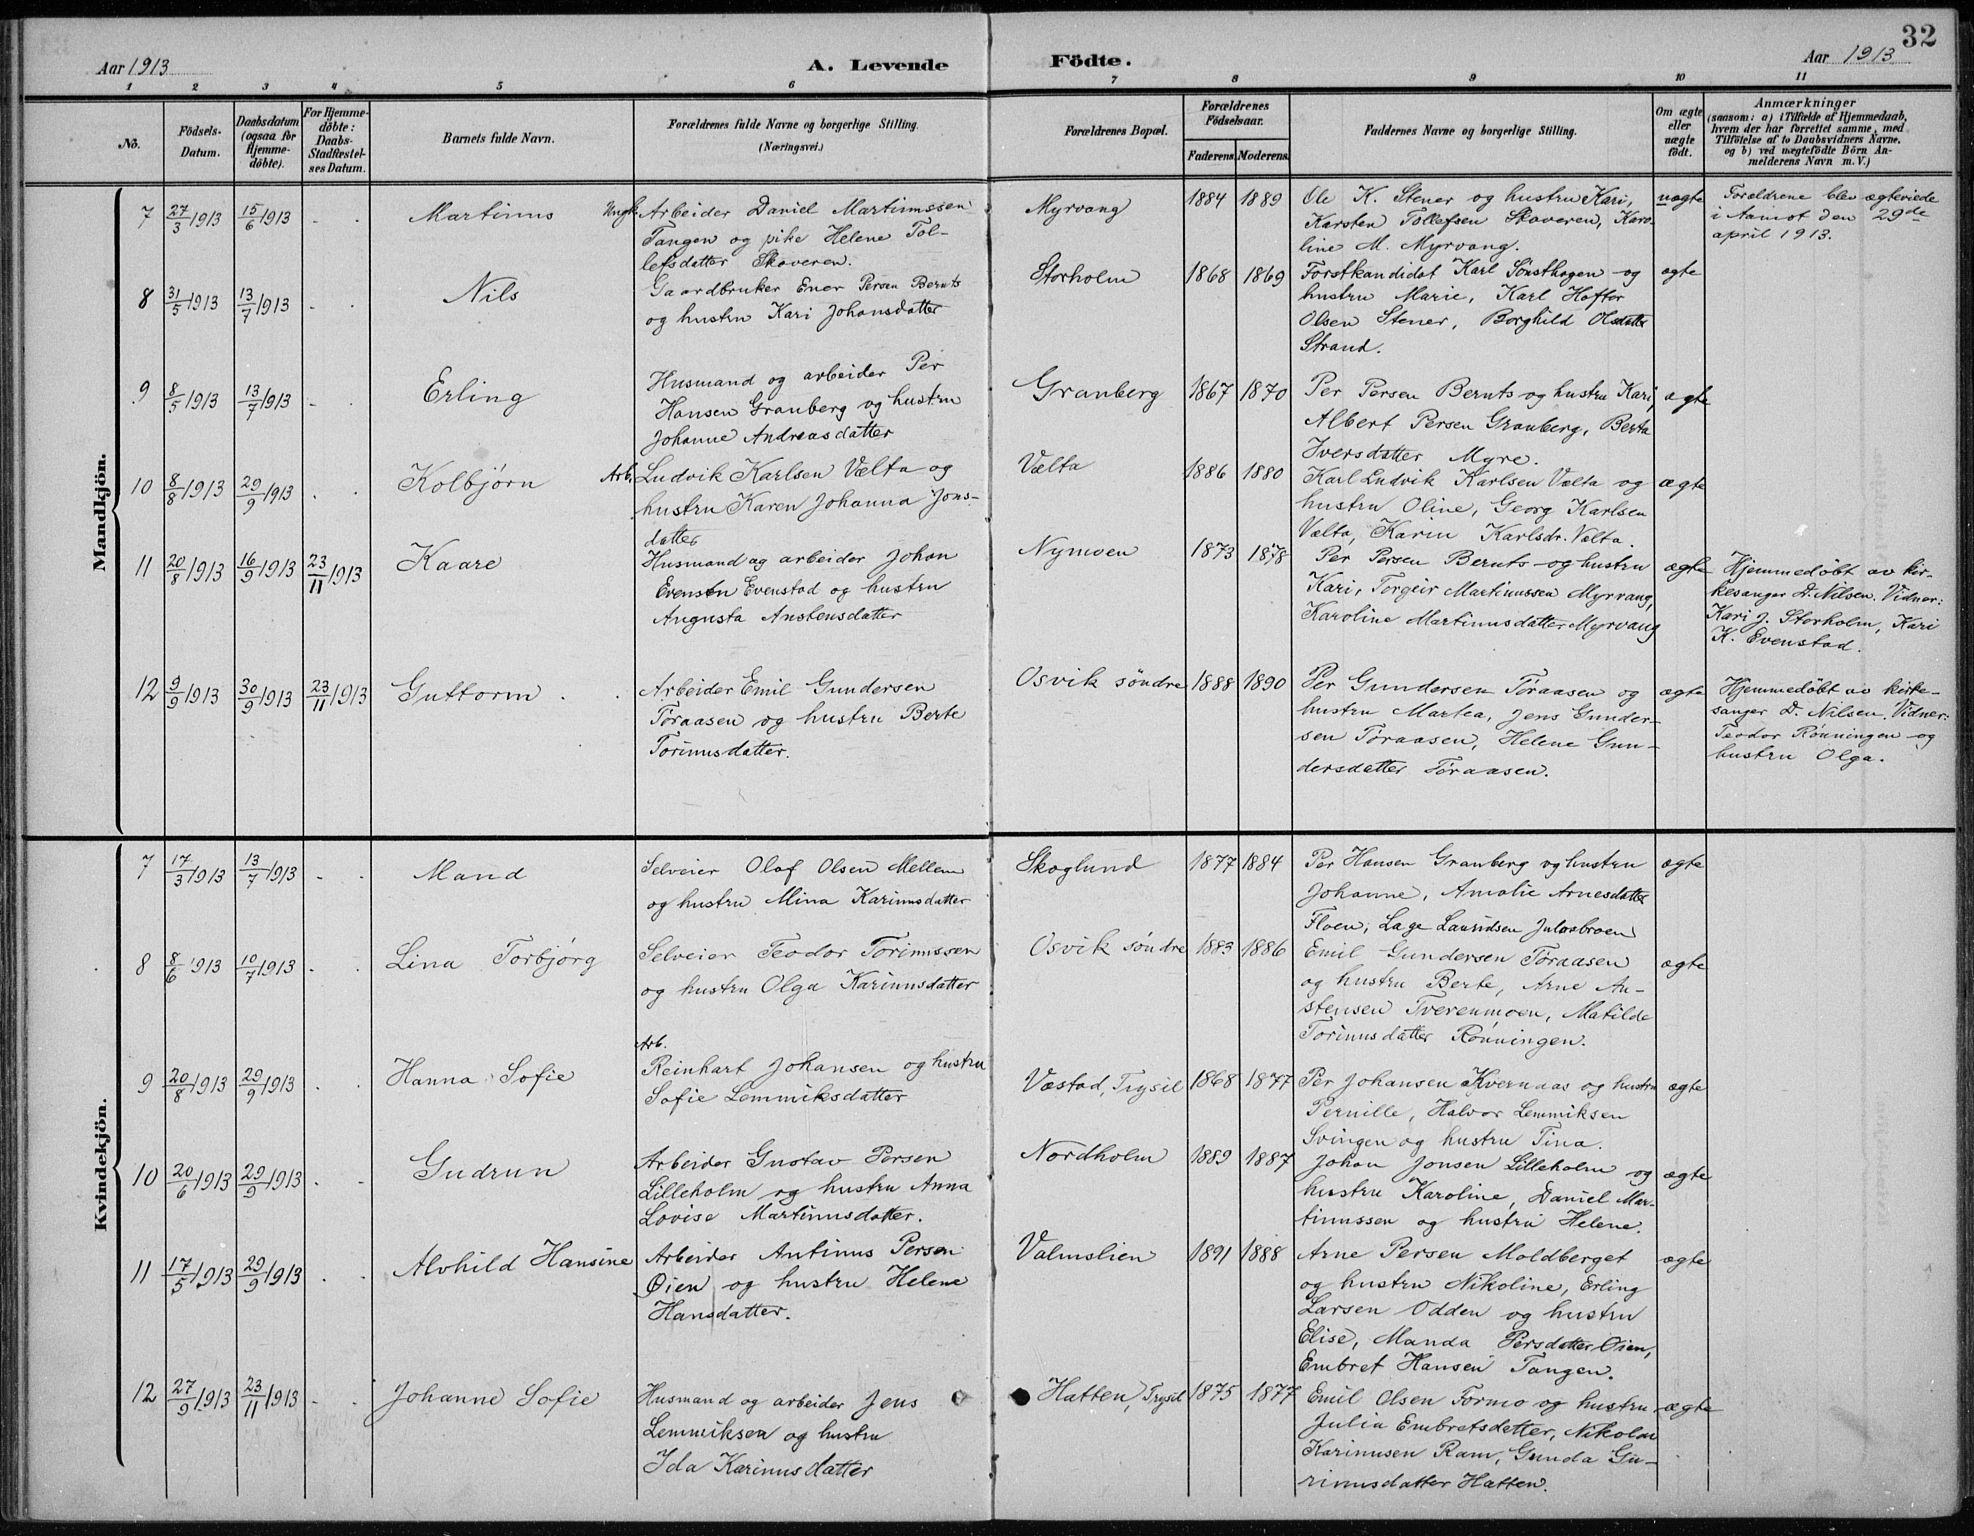 32
Aar 1913
A. Levende
Födte.
Aar 1913
1 2 3 4 5 6 7 8 9 10 11
No.
Födsels-
Datum.
Daabsdatum
(ogsaa for
Hjemme-
döbte).
For Hjemme-
döbte:
Daabs-
Stadfæstel-
ses Datum.
Barnets fulde Navn.
Forældrenes fulde Navne og borgerlige Stilling.
(Næringsvei.)
Forældrenes Bopæl.
Forældrenes
Födselsaar.
Faderens.
Moderens.
Faddernes Navne og borgerlige Stilling.
Om ægte
eller
uægte
födt.
Anmærkninger
(saasom: a) i Tilfælde af Hjemmedaab,
hvem der har forrettet samme, med
Tilföielse af to Daabsvidners Navne.
og b) ved uægtefödte Börn An-
melderens Navn m. V.)
Mandkjön.
7 27/3 1913 15/6 1913 - - Martinus
Ungk. Arbeider Daniel Martinussen
Tangen og pike Helene Tol-
lefsdatter Skaveren.
Myrvang 1884 1889
Ole K. Stener og hustru Kari,
Karsten Tollefsen Skaveren, Karo-
line M. Myrvang.
uægte
Foreldrene blev ægteviede
i Aamot den 29de
april 1913.
8 31/5 1913 13/7 1913 - - Nils
Gaardbruker Ener Persen Bernts
og hustru Kari Johansdatter
Storholm 1868 1869
Forstkandidat Karl Sønsthagen og
hustru Marie, Karl Haftor
Olsen Stener, Borghild Olsdatter
Strand.
ægte
9 8/5 1913 13/7 1913 - - Erling
Husmand og arbeider Per
Hansen Granberg og hustru
Johanne Andreasdatter
Granberg 1867 1870
Per Persen Bernts og hustru Kari,
Albert Persen Granberg, Berta
Iversdatter Myre.
ægte
10 8/8 1913 29/9 1913 . . Kolbjørn
Arb. Ludvik Karlsen Vælta og
hustru Karen Johanna Jons-
datter
Vælta 1886 1880
Karl Ludvik Karlsen Vælta og
hustru Oline, Georg Karlsen
Vælta, Karin Karlsdr. Vælta.
ægte
11 20/8 1913 16/9 1913 23/11 1913 Kaare
Husmand og arbeider Johan
Evensen Evenstad og hustru
Augusta Anstensdatter
Nymoen 1873 1878
Per Persen Bernts og hustru
Kari, Torgeir Martinussen Myrvang,
Karoline Martinusdatter Myrvang
ægte
Hjemmedøbt av kir-
kesanger D. Nilsen. Vidner:
Kari J. Storholm, Kari
K. Evenstad.
12 9/9 1913 30/9 1913 23/11 1913 Guttorm . .
Arbeider Emil Gundersen
Tøraasen og hustru Berte
Torinusdatter.
Osvik søndre 1888 1890
Per Gundersen Tøraasen og
hustru Martea, Jens Gunder-
sen Tøraasen, Helene Gun-
dersdatter Tøraasen.
ægte
Hjemmedøbt av kirke-
sanger D. Nilsen. Vidner:
Teodor Rønningen og
hustru Olga.
Kvindekjön.
7 17/3 1913 13/7 1913 - - Mand
Selveier Olaf Olsen Mellem
og hustru Mina Karinusdatter
Skoglund 1877 1884
Per Hansen Granberg og hustru
Johanne, Amalie Arnesdatter
Floen, Lage Lauridsen Julosbroen
ægte
8 8/6 1913 10/7 1913 - . Lina Torbjørg
Selveier Teodor Torinussen
og hustru Olga Karinusdatter
Osvik søndre 1883 1886
Emil Gundersen Tøraasen
og hustru Berte, Arne An-
stensen Tverenmoen, Matilde
Torinusdatter Rønningen.
ægte
9 20/8 1913 29/9 1913 . . Hanna Sofie
Arb.
Reinhart Johansen og hustru
Sofie Lemmiksdatter
Væstad, Trysil 1868 1877
Per Johansen Kvernaas og hustru
Pernille, Halvor Lemmiksen
Svingen og hustru Tina.
ægte
10 20/6 1913 29/9 1913 . . Gudrun
Arbeider Gustav Persen
Lilleholm og hustru Anna
Lovise Martinusdatter.
Nordholm 1889 1887
Johan Jonsen Lilleholm og
hustru Karoline, Daniel Mar-
tinussen og hustru Helene.
ægte
11 17/5 1913 29/9 1913 . . Alvhild Hansine
Arbeider Antinus Persen
Øien og hustru Helene
Hansdatter.
Valmslien 1891 1888
Arne Persen Moldberget
og hustru Nikoline, Erling
Larsen Odden og hustru
Elise, Manda Persdatter Øien,
Embret Hansen Tangen.
ægte
12 27/9 1913 23/11 1913 - - Johanne Sofie
Husmand og arbeider Jens
Lemmiksen og hustru
Ida Karinusdatter
Hatten, Trysil 1875 1877
Emil Olsen Formo og hustru
Julia Embretsdatter, Nikolai
Karinusen Ram, Gunda Gu-
rinusdatter Hatten.
ægte